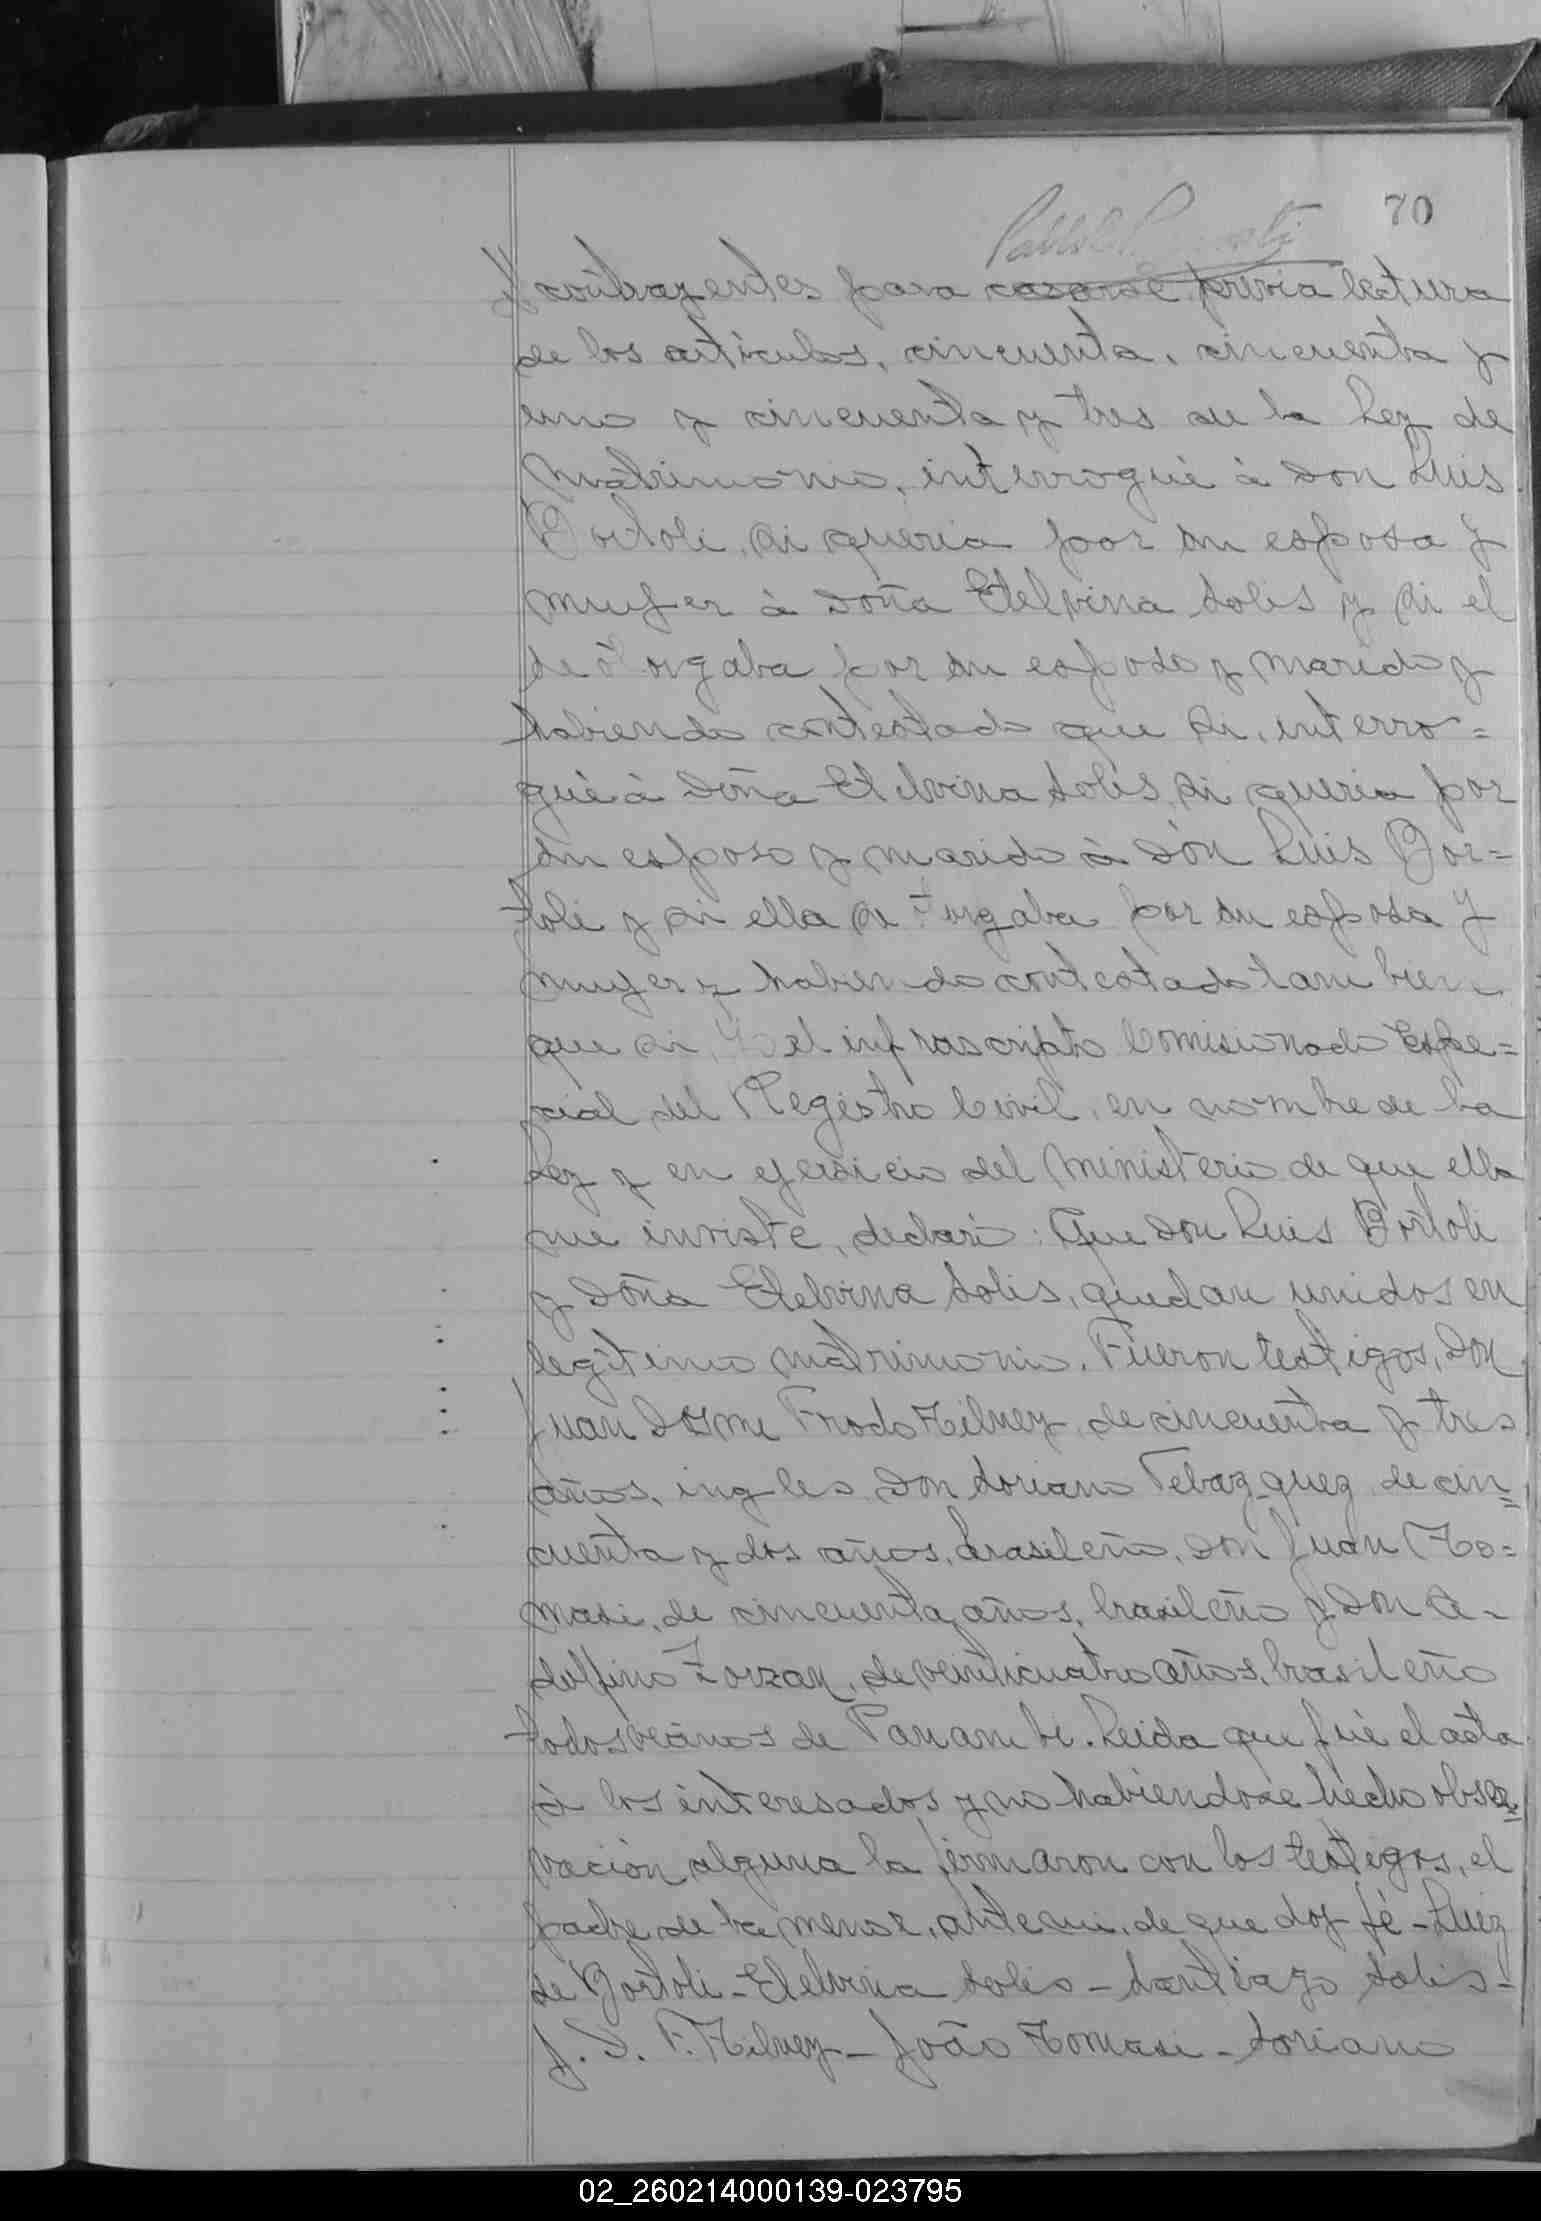 70
contrayentes para casarse previa lectura
de los artículos, cincuenta, cincuenta y
uno y cincuenta y tres de la Ley de
Matrimonio, interrogué á Don Luis
Bortoli, si queria por su esposa y
mujer á Doña Etelvina Solis y si el
se otorgaba por su esposo y marido y
habiendo contestado que si, interro=
gué á Doña Etelvina Solis, si queria por
su esposo y marido á Don Luis Bor=
toli y si ella se torgaba por su esposa y
mujer y habiendo contestado tambien
que si, Yo el infrascripto Comisionado Espe=
cial del Registro Civil, en nombre de la
Ley y en ejersicio del Ministerio de que ella
me inviste, declaré: Que Don Luis Bortoli
y Doña Etelvina Solis, quedan unidos en
legitimo matrimonio. Fueron testigos, Don
Juan Frods Tilney, de cincuenta y tres
años, ingles, Don Soriano de cin=
cuenta y dos años, brasileño, Don Juan To=
masi, de cincuenta años, brasileño y Don A-
delfino Zorzan, de veinticuatro años, brasileño
todos vecinos de Panambi. Leida que fué el acta
á los interesados y no habiendose hecho obser=
vación alguna la firmaron con los testigos, el
padre de la menor, ante mi, de que doy fé - Luiz
de Bortoli - Etelvina Solis - Santiago Solis -
J. D. F. Tilney - João Tomasi - Soriano
02_260214000139-023795